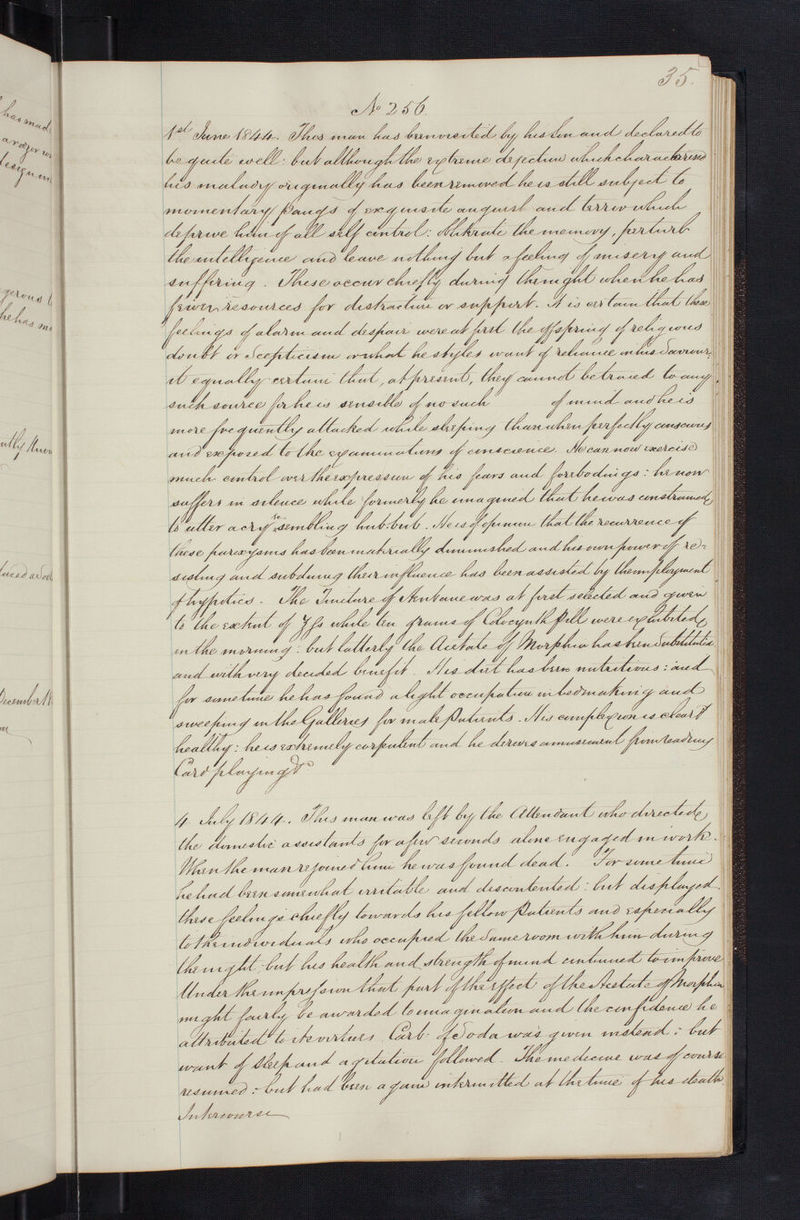 35.
No 256.
1st June 1844. This man has been visited by his Son and declared to
be quite well: but although the extreme dejection which characterised
his malady originally has been removed he is still subject to
momentary pangs of exquisite anguish and terror which
deprive him of all self control: obliterate the memory, perturb
the intelligence and leave nothing but a feeling of misery and
suffering. These occur chiefly during the night when he has
fewer resources for distraction or support. It is certain that these
feelings of alarm and despair were at first the offspring of religious
doubt or Scepticism or what he styles want of reliance in his Saviour:
it equally certain that, at present, they cannot be traced to any
such source for he is sensible of no such of mind and he is
more frequently attacked while sleeping than when perfectly conscious
and exposed to the examinations of conscience. He can now exercise
much control over the expression of his fears and forebodings: he now
suffers in silence while formerly he imagined that he was constrained
to utter a cry resembling hub-bub. He is of opinion that the recurrence of
these paroxysms has been materially diminished and his own power of re-
sisting and subduing their influence has been assisted by the employment
of hypnotics. The Tincture of was at first selected and given
to the extent of while ten grains of Colocynth Pill were exhibited
in the morning: but latterly the Acetate of Morphia has been Substituted
and with very decided benefit. His diet has been nutritious: and
for some time he has found a light occupation in bedmaking and
sweeping in the Galleries for male Patients. His complexion is clear &
healthy: he is extremely corpulent and he derives amusement from reading
Card playing &c

4 July 1844. This man was left by the Attendant who directed
the domestic assistants for a few seconds alone engaged in work.
When the man rejoined him he was found dead. For some time
he had been somewhat irritable and discontented: but displayed
these feelings chiefly towards his fellow Patients and especially
to the individuals who occupied the Same room with him during
the night: but his health and strength of mind continued to improve
Under the impression that part of the effect of the Acetate of Morphia
might fairly be awarded to imagination and the confidence he
attributed to its virtues Carb of Soda was given instead: but
want of Sleep and agitation followed. The medecine was of course
resumed: but had been again intermitted at the time of his death
Intercourse